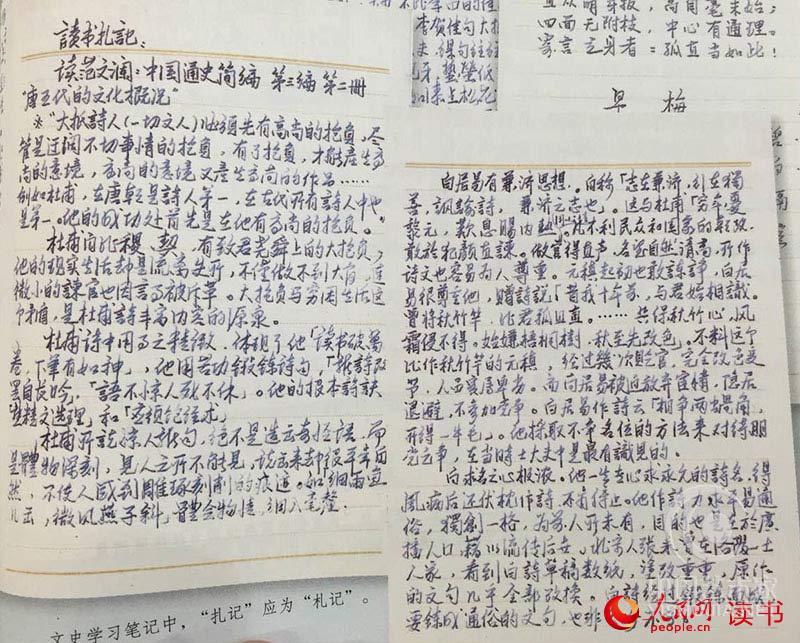 讀书札記：
读范文澜：中国通史简编 第三编 第二册
"唐五代的文化概况"
＊"大抵詩人(一切文人)必须先有高尚的抱負，尽
管是迂阔不切事情的抱負，有了抱負，才能產生高
尚的意境，高尚的意境又產生高尚的作品……
例如杜甫，在唐朝是詩人第一，在古代所有詩人中也
是第一。他的成功处首先是在他有高尚的抱負。"
杜甫自比稷、契，有致君尧舜上的大抱負，
他的现实生活却是流离失所，不僅做不到大官，連
微小的諫官也因言事被斥革。大抱負与穷困生活这个
矛盾，是杜甫詩丰富内容的源泉。
杜甫詩中用功之精微，体现了他「读书破萬
卷，下筆有如神」，他用苦功锻鍊詩句，「新詩改
罢自長吟」，「語不惊人死不休」。他的根本詩訣
「熟精文选理」和「
杜甫所說惊人语句，绝不是造云奇怪語，而
是體物深刻，見人之所不能見，说出来却很平常自
然，不使人感到雕琢刻削的痕迹。如细雨魚
儿云，微风燕子斜」體会物性，细入毫釐。
白居易有兼济思想。自称「志在兼济，行在獨
善，諷諭詩，兼济之志也」。这与杜甫「穷年憂
黎元，歎息腸内热」 不利民众和国家的弊政，
敢於犯颜直諫。做官得直声，名望自然清高，所作
诗文也容易为人尊重。元稹起初也敢諫諍，白居
易很尊重他，赠詩說「昔我十年前，与君始相識。
曾將秋竹竿，比君孤且直。……共保秋竹心，风
霜侵不得。始嫌梧桐樹，秋至先改色」。不料这个
比作秋竹竿的元稹，经过幾次贬官，完全改色变
节，人品實属卑劣。而白居易被迫放弃官情，隐居
退避，不参加党争。白居易作詩云「相争两蝸角，
所得一牛毛」。他採取不争名位的方法来对待朋
党之争，在当時士大夫中是最有識見的。
白求名之心极浓。他一生在心求永元的詩名，得
風病后还伏枕作詩，不肯停止。他作詩力求平易通
俗，獨創一格，为前人所未有，目的也是在於廣
播人口，藉以流传后世。北宋人张耒 在洛陽一士
人家，看到白詩草稿数纸，塗改重重，原作
的文句几乎全部改换。白詩经过锻鍊而成
要练成通俗的文句，也非
四面无附枝，中心有通理。
寄言立身者：孤直当如此！
早梅
文史学习笔记中，"扎记"应为"札记"。
人民网 读书
people.cn